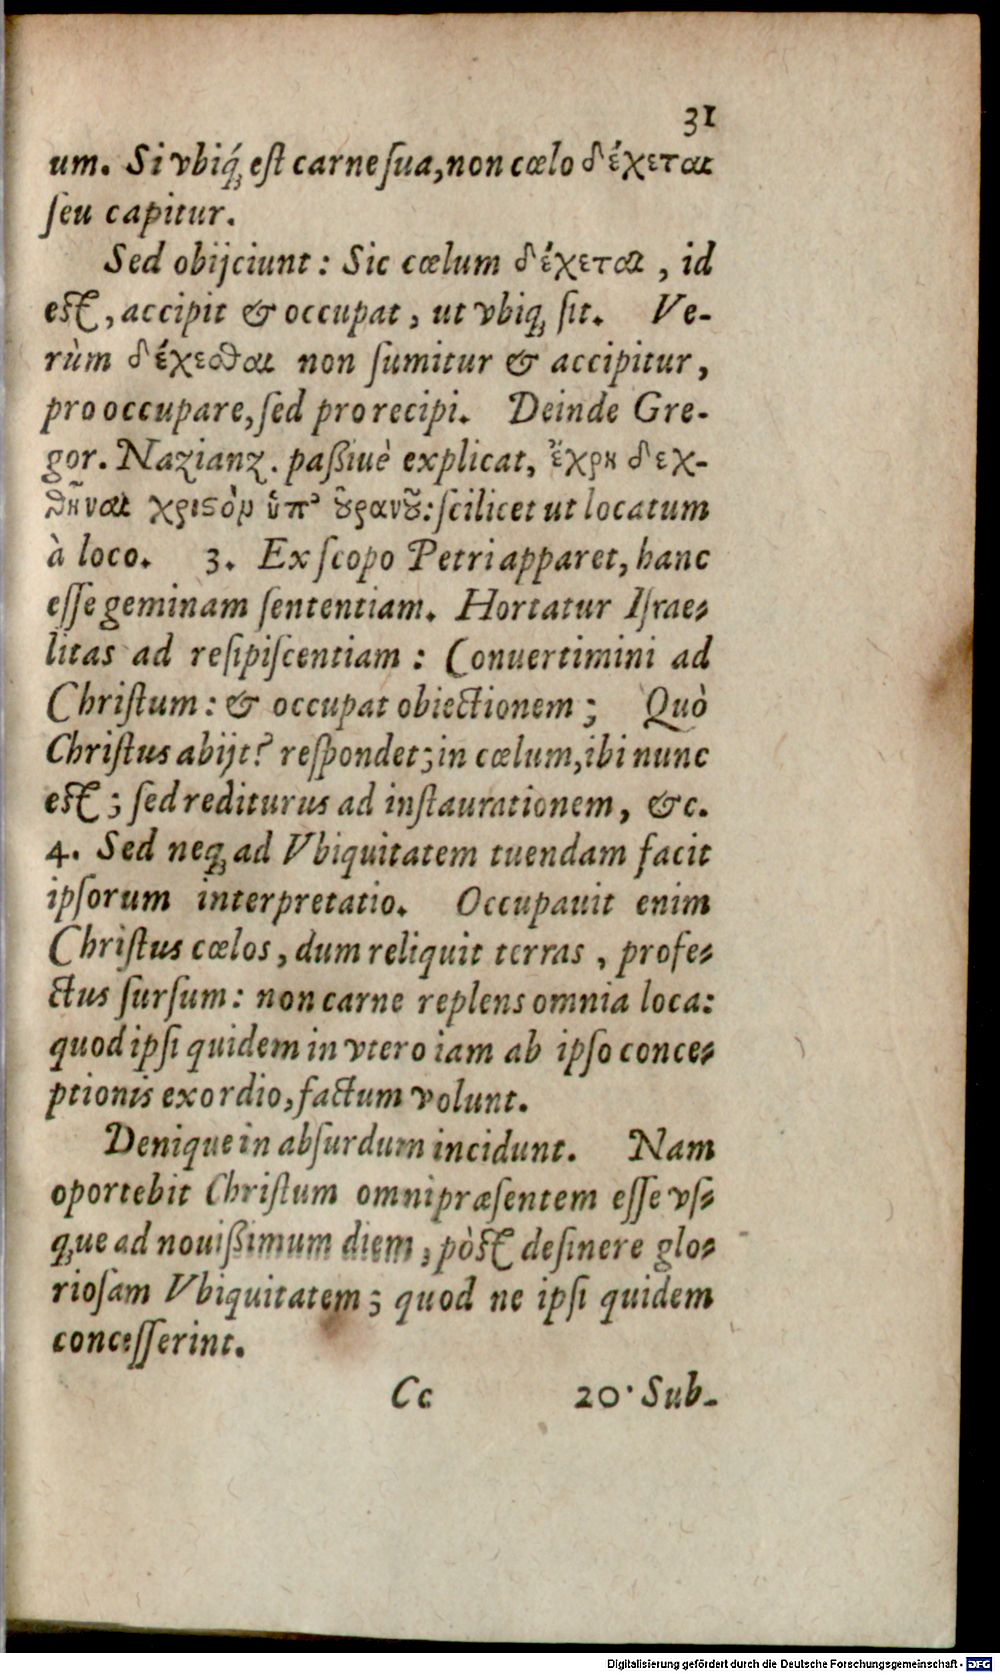 31
um. Si vbiq́; est carne sua, non cœlo δέχεται
seu capitur.
Sed obijciunt: Sic cœlum δέχεται, id
est, accipit & occupat, ut vbiq; sit. Ve-
rùm δέχεσθαι non sumitur & accipitur,
pro occupare, sed pro recipi. Deinde Gre-
gor. Nazianz. paßiuè explicat, ἔχρη δεχ-
θῆναι χριςὸν ὑπ' ȣ̓ρανȣ͂: scilicet ut locatum
à loco. 3. Ex scopo Petri apparet, hanc
esse geminam sententiam. Hortatur Israe-
litas ad resipiscentiam: Conuertimini ad
Christum: & occupat obiectionem; Quò
Christus abijt? respondet; in cœlum, ibi nunc
est; sed rediturus ad instaurationem, &c.
4. Sed neq; ad Vbiquitatem tuendam facit
ipsorum interpretatio. Occupauit enim
Christus cœlos, dum reliquit terras, profe-
ctus sursum: non carne replens omnia loca:
quod ipsi quidem in vtero iam ab ipso conce-
ptionis exordio, factum volunt.
Denique in absurdum incidunt. Nam
oportebit Christum omnipræsentem esse vs-
q;ue ad nouißimum diem, pòst desinere glo-
riosam Vbiquitatem; quod ne ipsi quidem
concesserint.
Cc 20. Sub-
Digitalisierung gefördert durch die Deutsche Forschungsgemeinschaft - DFG